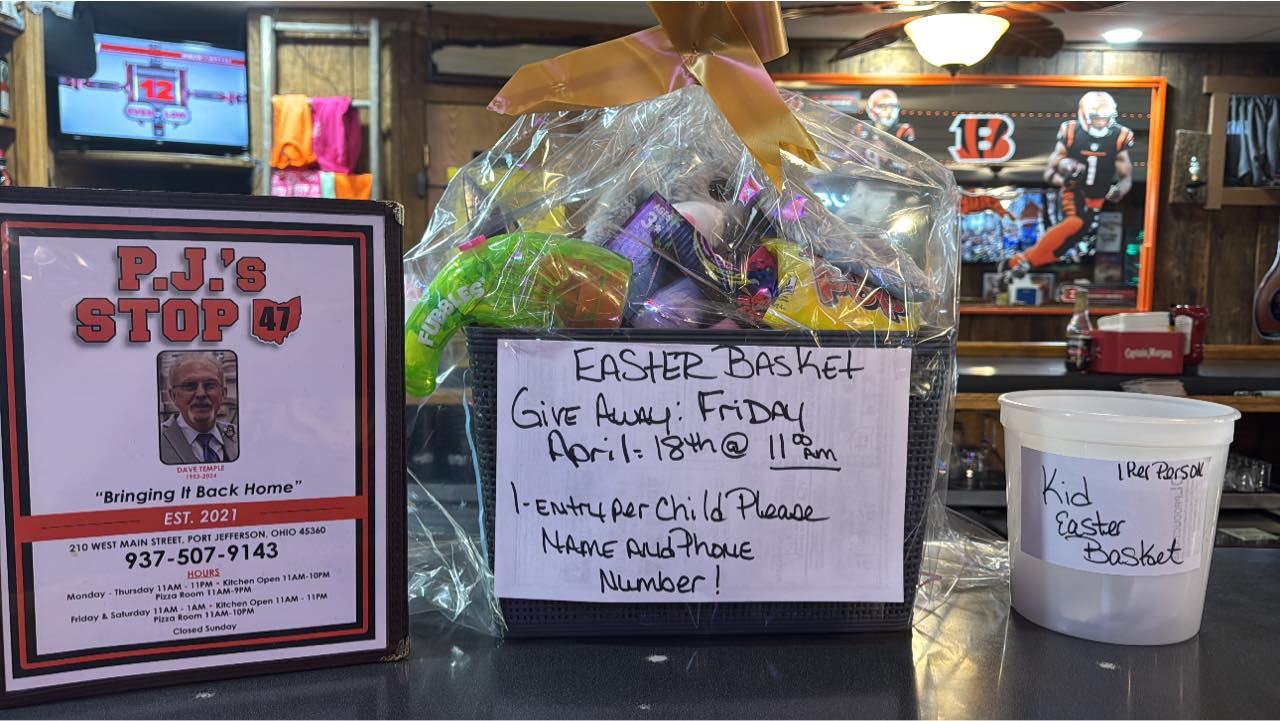 P.J.'s
STOP 47
DAVE TEMPLE
1953-2024
"Bringing It Back Home"
EST. 2021
210 WEST MAIN STREET, PORT JEFFERSON, OHIO 45360
937-507-9143
HOURS
Monday - Thursday 11AM - 11PM • Kitchen Open 11AM-10PM
Pizza Room 11AM-9PM
Friday & Saturday 11AM - 1AM • Kitchen Open 11AM - 11PM
Pizza Room 11AM-10PM
Closed Sunday
12
FUBBLES
EASTER BASKET
Give Away: FriDAY
April: 18th @ 11 00 AM
1-Entry per Child Please
NAME AND Phone
Number!
1 Per Person
Kid
Easter
Basket
B
1
Captain Morgan